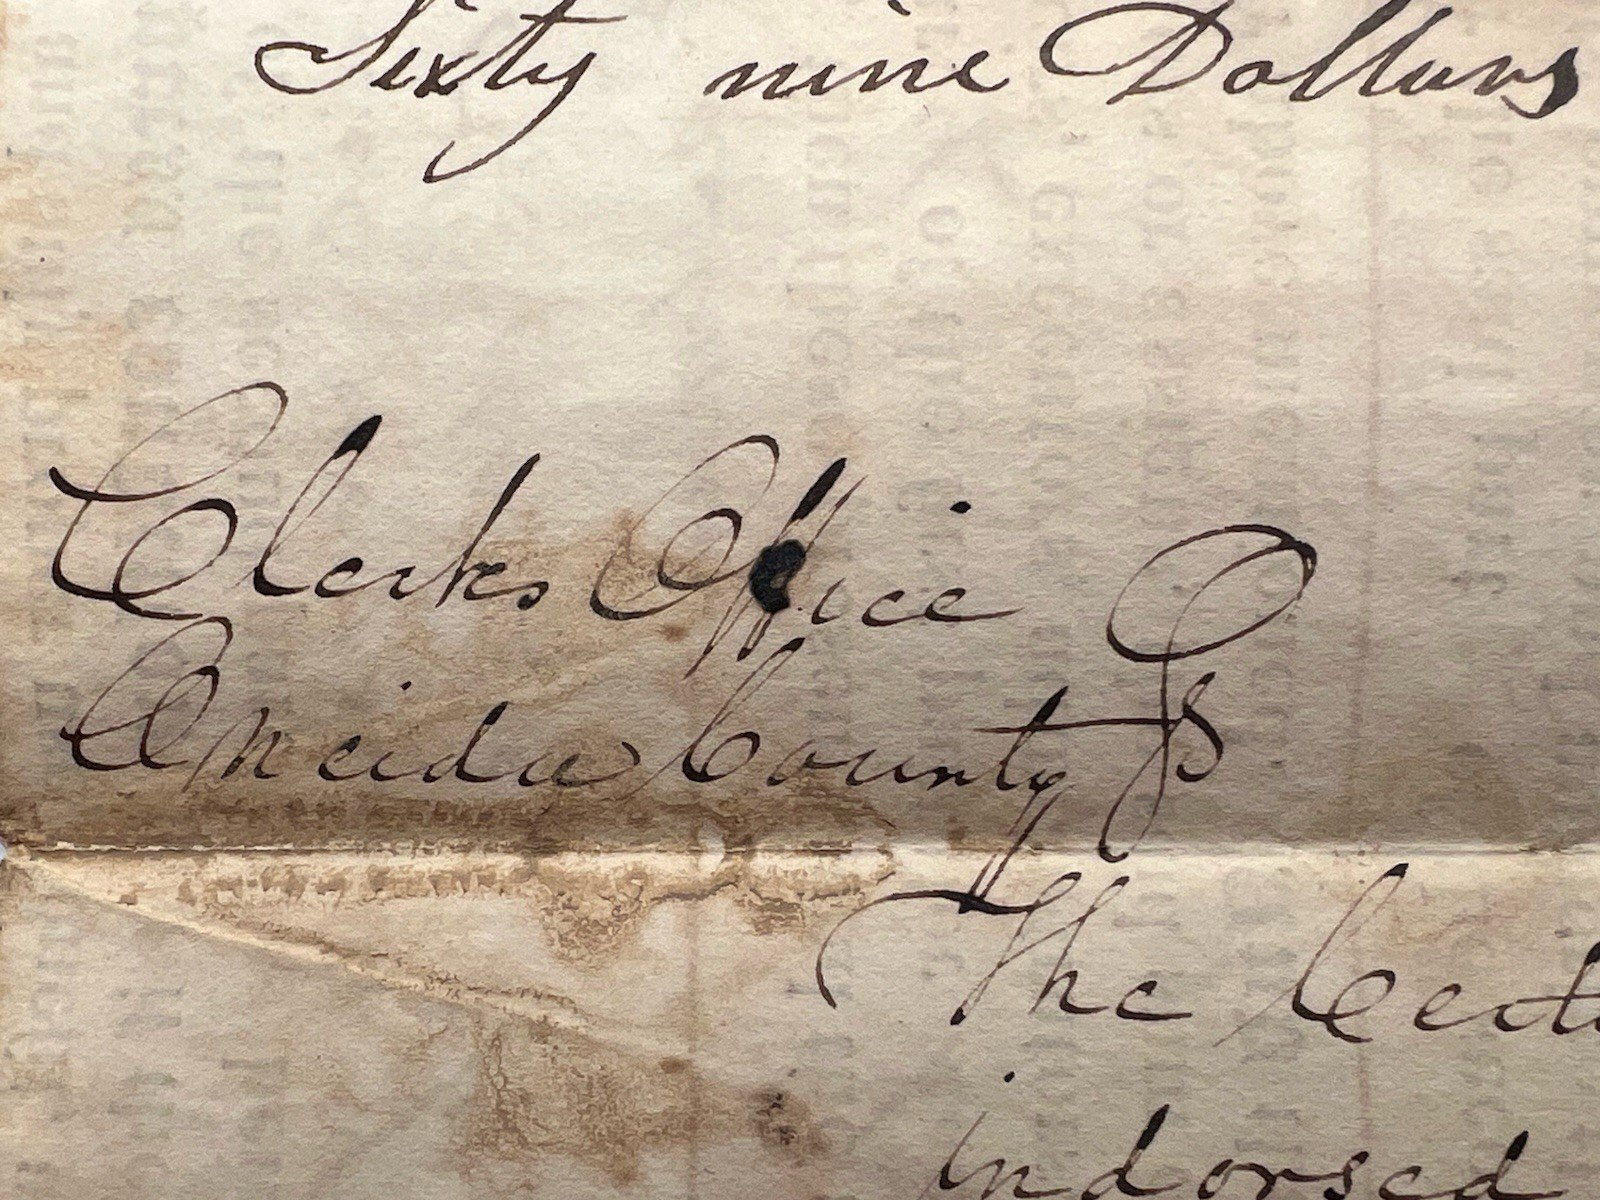 Sixty nine Dollars
Clerks Office
Oneida County Ss
The
indorsed